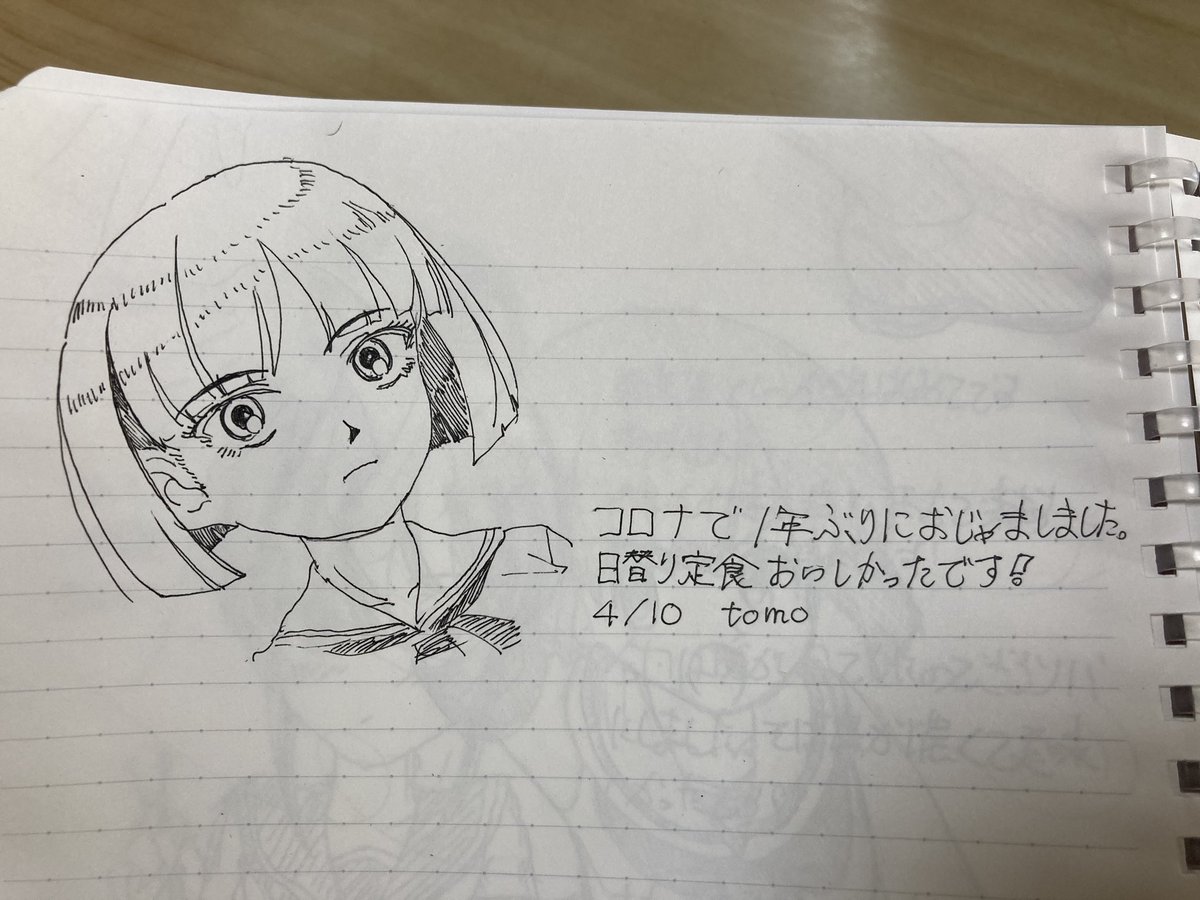 コロナで1年ぶりにおじゃましました。
日替り定食おいしかったです!
4/10 tomo